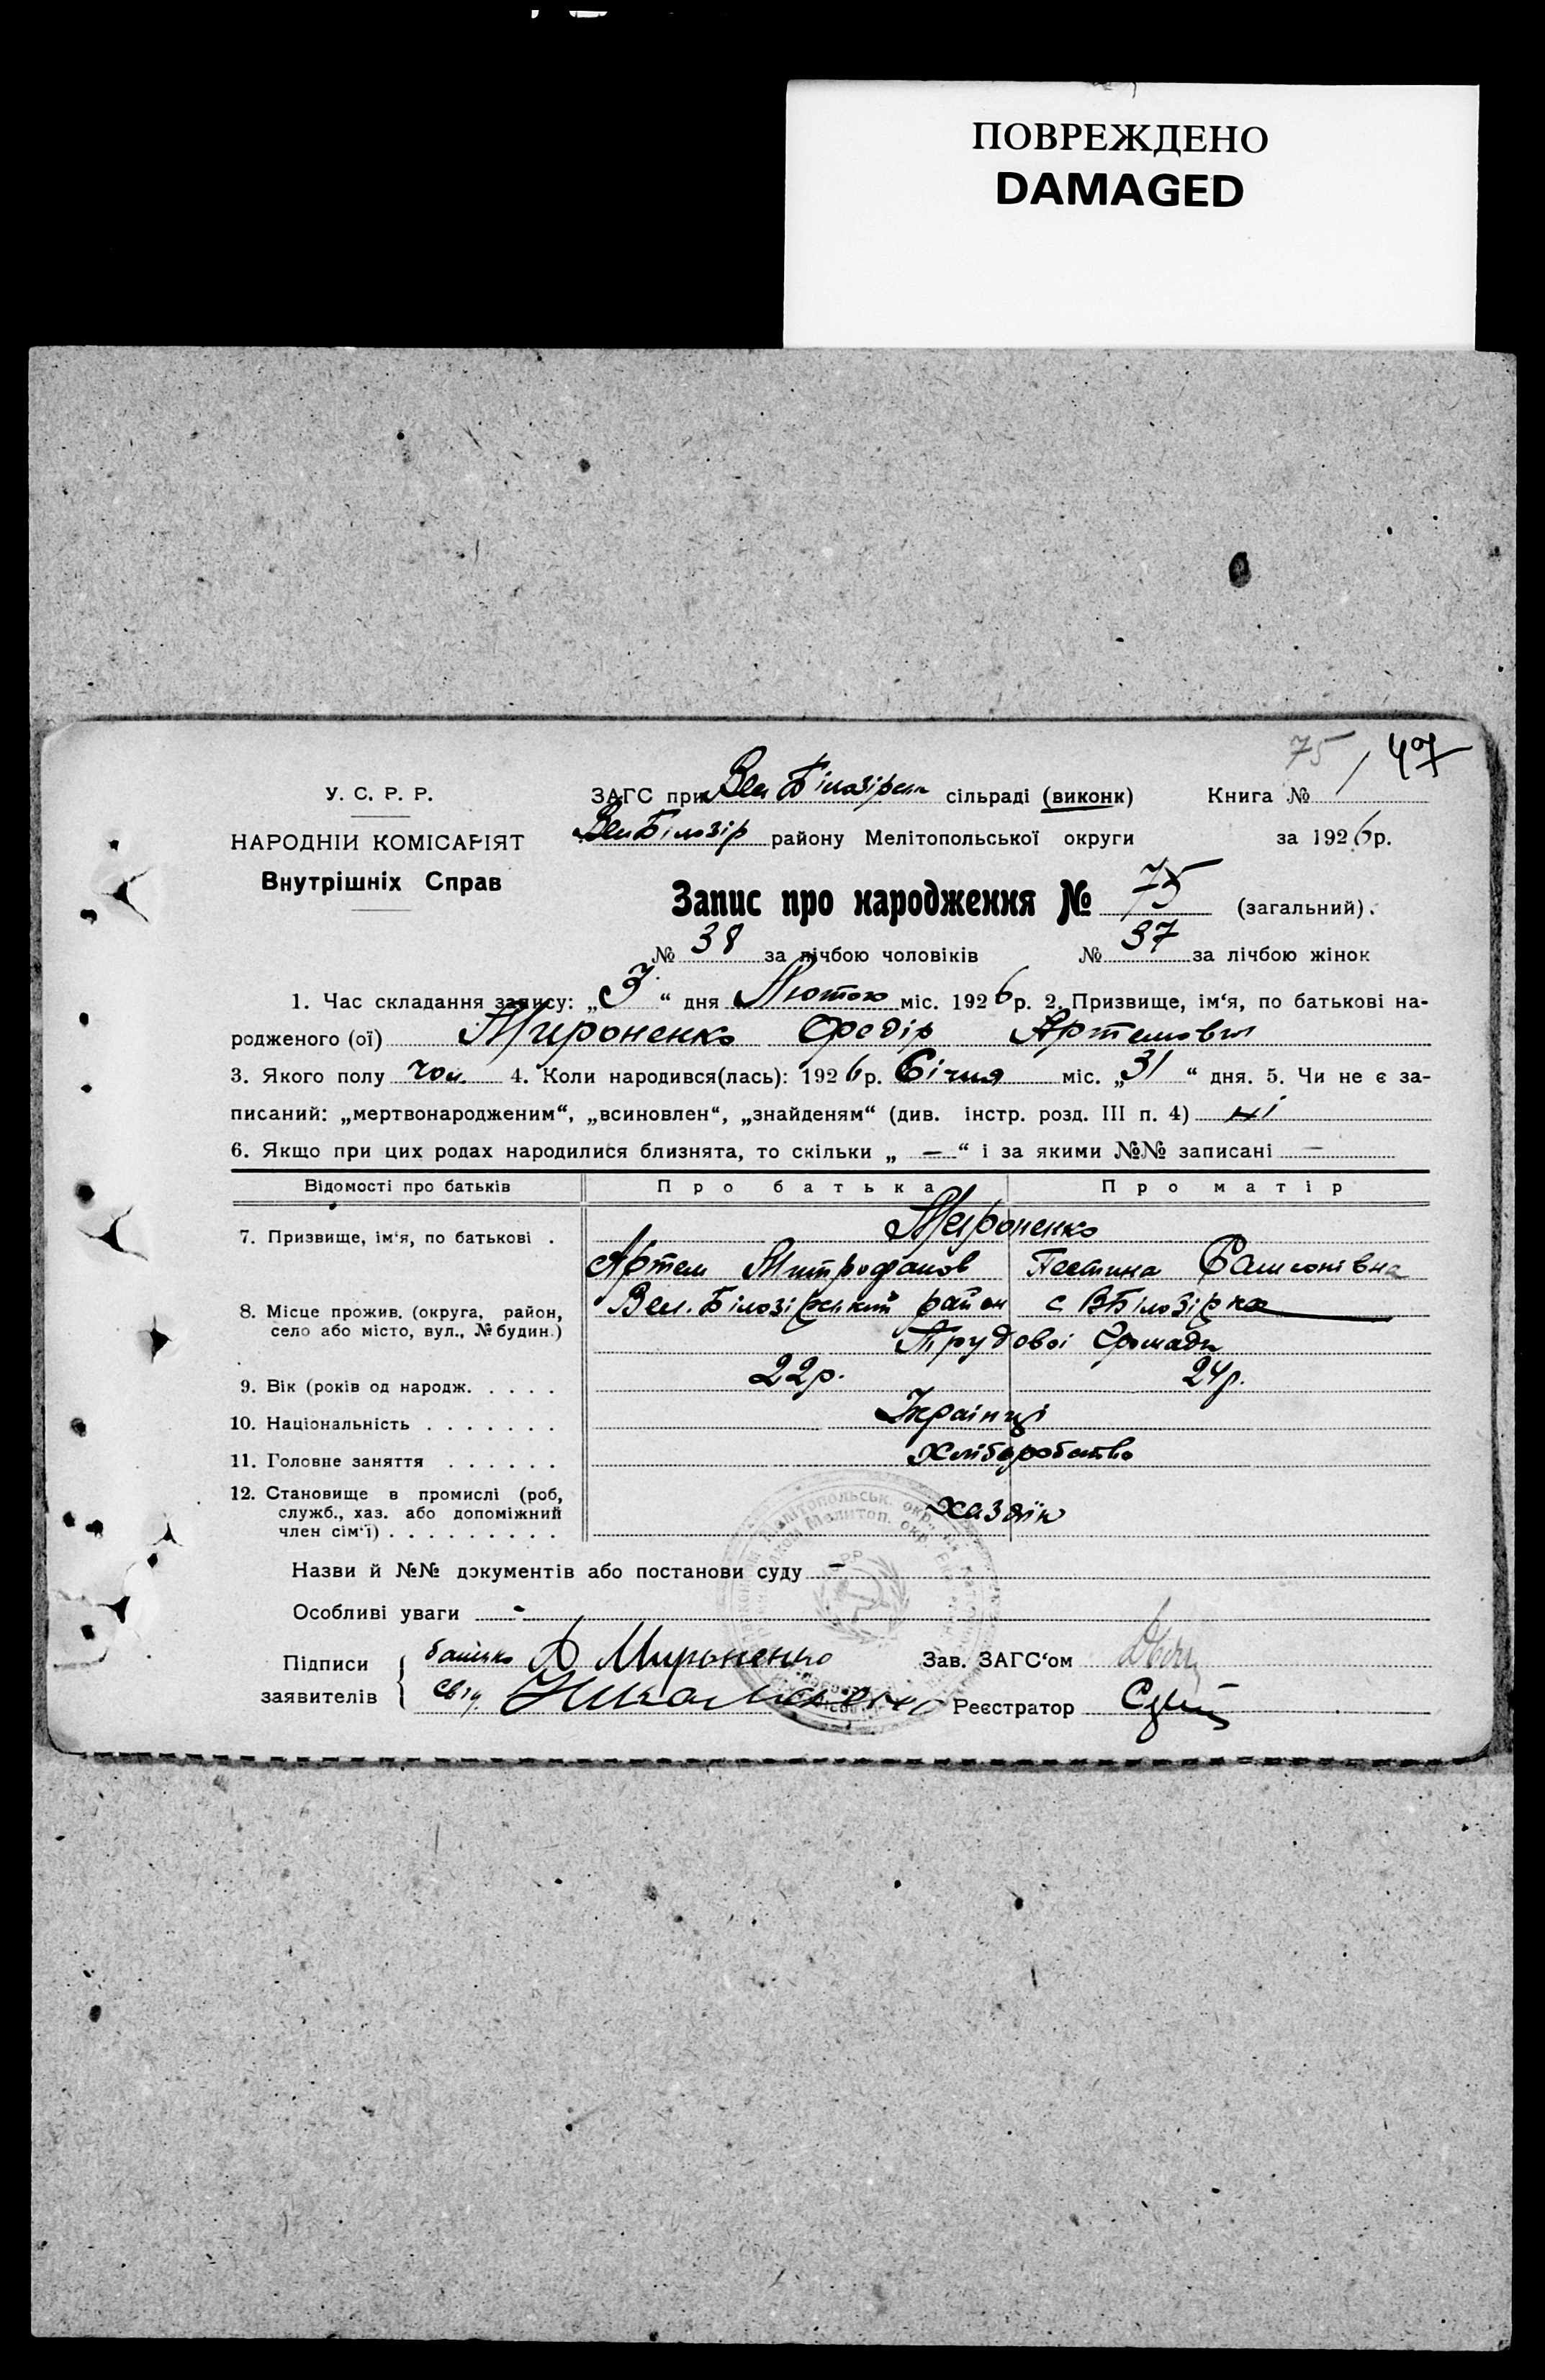 ПОВРЕЖДЕНО
DAMAGED
75 / 47
У. С. Р. Р.
НАРОДНІЙ КОМІСАРІЯТ
Внутрішніх Справ
ЗАГС при Вел Білозірськ сільраді (виконк)
Книга №
Вел Білозір району Мелітопольської округи
за 1926 р.
Запис про народження № 75 (загальний).
№ 38 за лічбою чоловіків № 37 за лічбою жінок
1. Час складання запису: „3“ дня Лютого міс. 1926 р. 2. Призвище, ім‘я, по батькові на-
родженого (ої) Мироненко Федір Артемович
3. Якого полу чол. 4. Коли народився(лась): 1926 р. Січня міс. „31“ дня. 5. Чи не є за-
писаний: „мертвонародженим“, „всиновлен“, „знайденям“ (див. інстр. розд. III п. 4) ні
6. Якщо при цих родах народилися близнята, то скільки „ — “ і за якими №№ записані —
Відомості про батьків Про батька Про матір
7. Призвище, ім‘я, по батькові . Мироненко
Артем Митрофанов Самсонівна
8. Місце прожив. (округа, район, Вел. Білозірський район с ВБілозірка
село або місто, вул., № будин.)
Трудової Громади
9. Вік (років од народж. . . . . 22р. 24р.
10. Національність . . . . . . . Українці
11. Головне заняття . . . . . . хліборобство
12. Становище в промислі (роб,
служб., хаз. або допоміжний
член сім‘ї) . . . . . . . . . хазяїн
Назви й №№ документів або постанови суду —
Особливі уваги -
Підписи
заявителів
батько А Мироненко
Зав. ЗАГС‘ом
Реєстратор